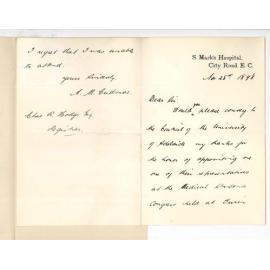 S. Mark's Hospital,
City Road E.C.
Nov 25th 1896
Dear Sir
Would you please convey to
the Council of the University
of Adelaide my thanks for
the honor of appointing me
one of their representatives
at the Medical
Congress held at
I regret that I was unable
to attend.
Yours sincerely
A. M.
Chas R. Hodge Esq
Registrar